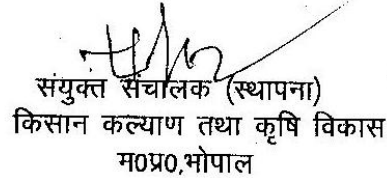 संयुक्त संचालक (स्थापना)
किसान कल्याण तथा कृषि विकास
म0प्र0,भोपाल